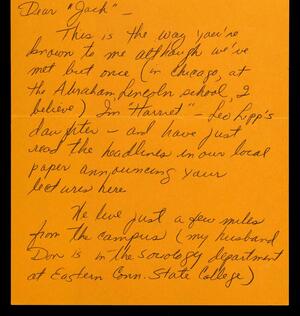 Dear "Jack" –
This is the way you're
known to me although we've
met but once (in Chicago, at
the Abraham Lincoln school, I
believe) I'm "Harriet" – Leo Lipp's
daughter – and have just
read the headlines in our local
paper announcing your
lectures here
We live just a few miles
from the campus (my husband
Don is in the sociology department
at Eastern Conn. State College)